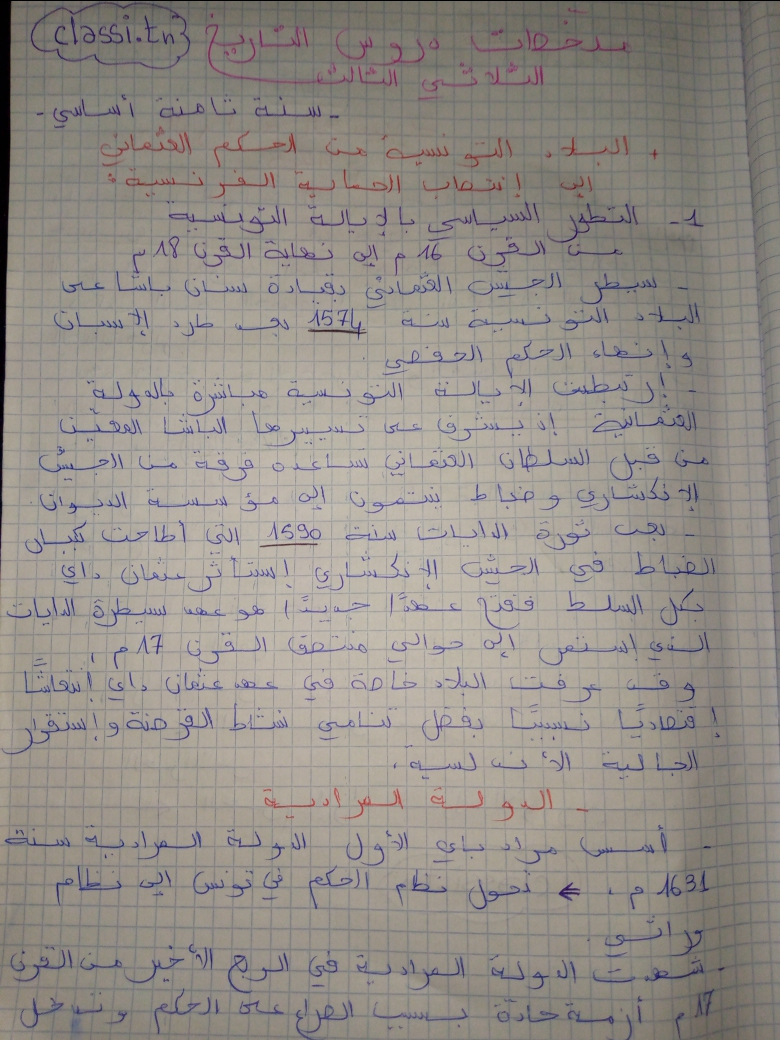 classi.tn
ملخصات دروس التاريخ
الثلاثي الثالث
- سنة ثامنة أساسي -
. البلاد التونسية من الحكم العثماني
إلى إنتصاب الحماية الفرنسية :
1- التطور السياسي بالإيالة التونسية
من القرن 16 م إلى نهاية القرن 18 م
- سيطر الجيش العثماني بقيادة سنان باشا على
البلاد التونسية سنة 1574 بعد طرد الإسبان
وإنهاء الحكم الحفصي .
- إرتبطت الإيالة التونسية مباشرة بالدولة
العثمانية إذ يشرف على تسييرها الباشا المعيّن
من قبل السلطان العثماني تساعده فرقة من الجيش
الإنكشاري وضباط ينتمون إلى مؤسسة الديوان
- بعد ثورة الدايات سنة 1590 التي أطاحت بكبار
الضباط في الجيش الإنكشاري إستأثر عثمان داي
بكل السلط ففتح عهدًا جديدًا هو عهد سيطرة الدايات
الذي إستمر إلى حوالي منتصف القرن 17 م .
وقد عرفت البلاد خاصة في عهد عثمان داي إنتعاشًا
إقتصاديًا نسبيًا بفضل تنامي نشاط القرصنة وإستقرار
الجالية الأندلسية .
- الدولة المرادية
- أسس مراد باي الأول الدولة المرادية سنة
1631 م . ← تحول نظام الحكم في تونس إلى نظام
وراثي .
- شهدت الدولة المرادية في الربع الأخير من القرن
17 م أزمة حادة بسبب الصراع على الحكم وتدخل